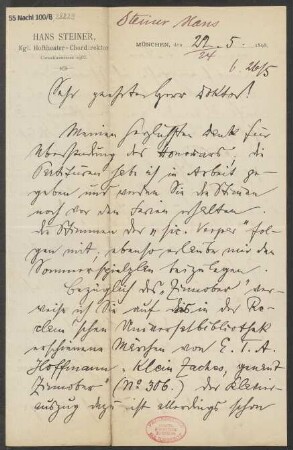 55 Nachl 100/B
Steiner Hans
HANS STEINER,
Kgl. Hoftheater-Chordirektor
MÜNCHEN, den 22. 5.
24
b. 26/5
Sehr geehrter Herr Doktor!
Meinen herzlichsten Dank für
Übersendung des Honorars! die
Partituren habe ich in Arbeit ge-
geben und werden Sie die Stimmen
noch vor den Ferien erhalten.
die Stimmen der "sic. Vesper" fol-
gen mit, ebenso erlaube mir den
Sommerspielplan beizulegen.
Bezüglich des "Zinnober" ver-
weise ich Sie auf das in der Re-
clam'schen Universalbibliothek
erschienene Märchen von E. T. A.
Hoffmann "Klein Zaches, genannt
Zinnober" (No 306.) der Klavier-
auszug dazu ist allerdings schon